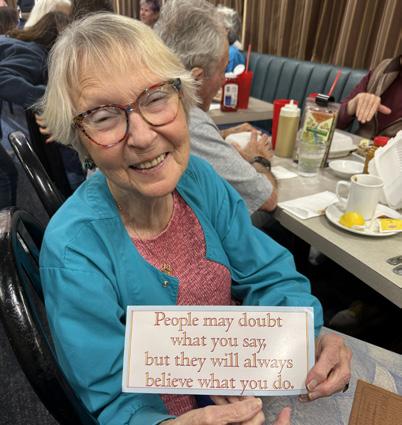 People may doubt
what you say,
but they will always
believe what you do.